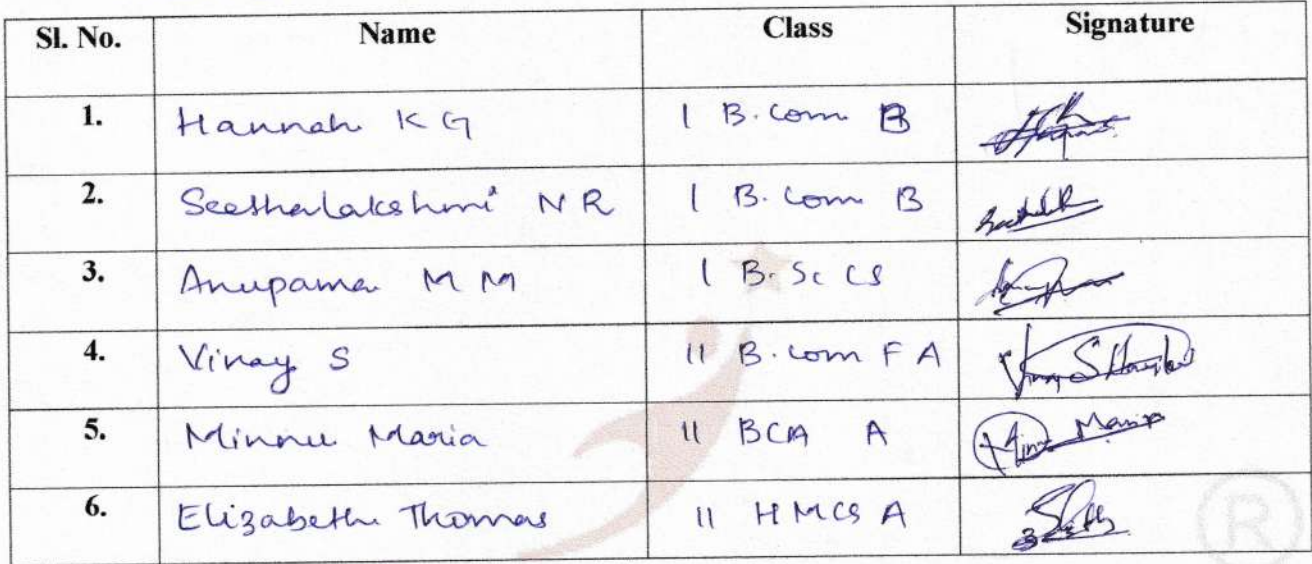 Sl. No. Name Class Signature
1. Hannah K G I B.Com B
2. Seethalakshmi N R I B.Com B
3. Anupama M M I B.Sc CS
4. Vinay S II B.com F A
5. Minnu Maria II BCA A Minnu Maria
6. Elizabeth Thomas II HMCS A
R